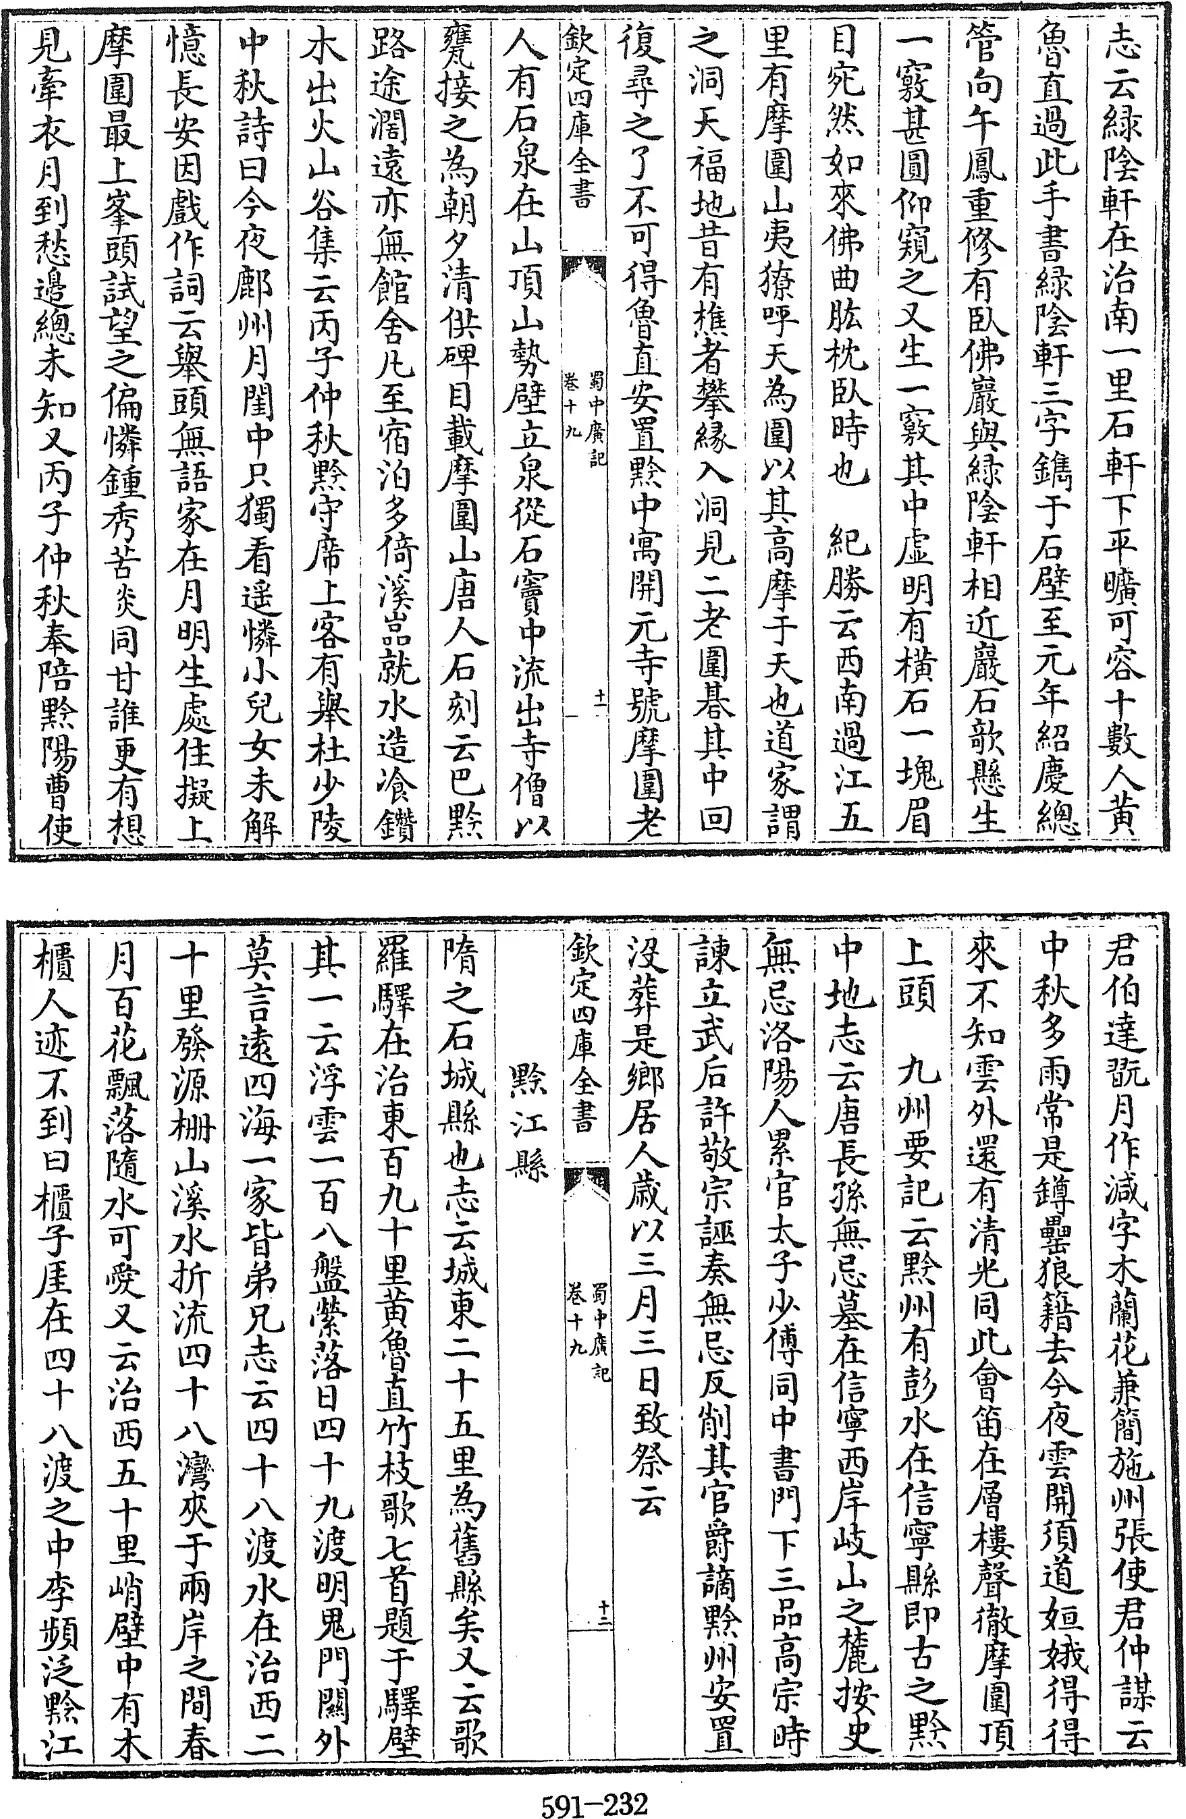 志云緑陰軒在治南一里石軒下平曠可容十數人黄
魯直過此手書緑陰軒三字鐫于石壁至元年紹慶總
管向午鳳重修有臥佛巖與緑陰軒相近巖石欹懸生
一竅甚圓仰窺之又生一竅其中虚明有横石一塊眉
目宛然如來佛曲肱枕臥時也　紀勝云西南過江五
里有摩圍山夷獠呼天為圍以其高摩于天也道家謂
之洞天福地昔有樵者攀縁入洞見二老圍碁其中回
復尋之了不可得魯直安置黔中寓開元寺號摩圍老
欽定四庫全書
蜀中廣記
卷十九
十一
人有石泉在山頂山勢壁立泉從石竇中流出寺僧以
甕接之為朝夕清供碑目載摩圍山唐人石刻云巴黔
路途濶遠亦無館舍凡至宿泊多倚溪嵒就水造飡鑽
木出火山谷集云丙子仲秋黔守席上客有舉杜少陵
中秋詩曰今夜鄜州月閨中只獨看遥憐小兒女未解
憶長安因戲作詞云舉頭無語家在月明生處住擬上
摩圍最上峯頭試望之偏憐鍾秀苦炎同甘誰更有想
見牽衣月到愁邊總未知又丙子仲秋奉陪黔陽曹使
君伯達翫月作減字木蘭花兼簡施州張使君仲謀云
中秋多雨常是鐏罍狼籍去今夜雲開須道姮娥得得
來不知雲外還有清光同此會笛在層樓聲徹摩圍頂
上頭　九州要記云黔州有彭水在信寧縣即古之黔
中地志云唐長孫無忌墓在信寧西岸岐山之麓按史
無忌洛陽人累官太子少傅同中書門下三品高宗時
諫立武后許敬宗誣奏無忌反削其官爵謫黔州安置
没葬是鄉居人歲以三月三日致祭云
欽定四庫全書
蜀中廣記
卷十九
十二
黔江縣
隋之石城縣也志云城東二十五里為舊縣矣又云歌
羅驛在治東百九十里黄魯直竹枝歌七首題于驛壁
其一云浮雲一百八盤縈落日四十九渡明鬼門關外
莫言逺四海一家皆弟兄志云四十八渡水在治西二
十里發源栅山溪水折流四十八灣夾于兩岸之間春
月百花飄落隨水可愛又云治西五十里峭壁中有木
櫃人迹不到曰櫃子厓在四十八渡之中李頻泛黔江
591-232